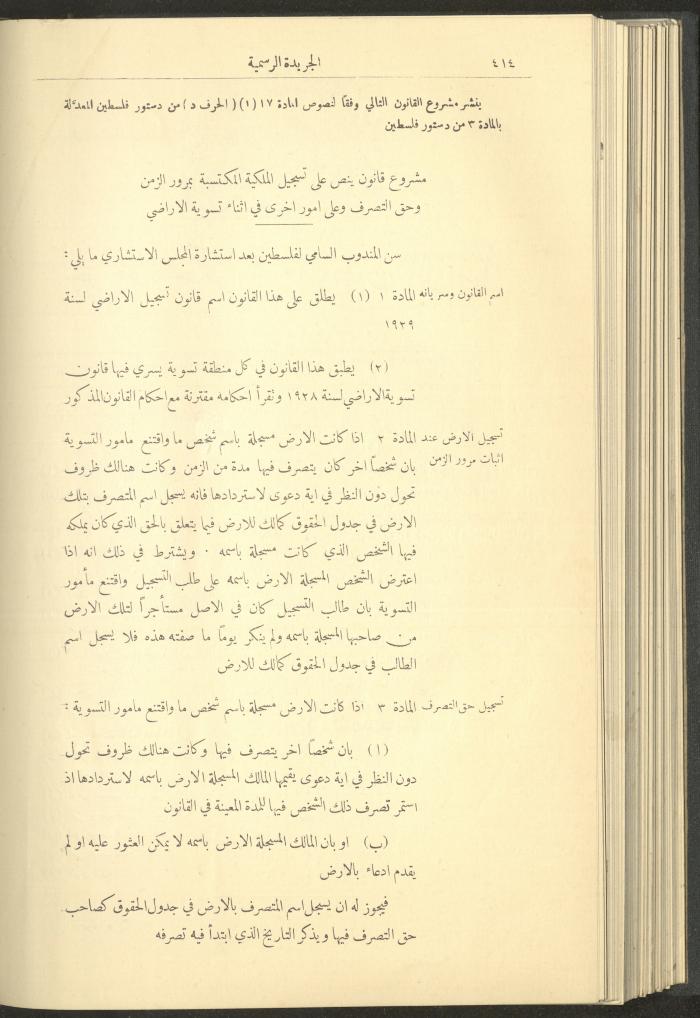 ٤١٤
الجريدة الرسمية
ينشر مشروع القانون التالي وفقا لنصوص المادة ١٧ (١) (الحرف د) من دستور فلسطين المعدلة
بالمادة ٣ من دستور فلسطين
مشروع قانون ينص على تسجيل الملكية المكتسبة بمرور الزمن
وحق التصرف وعلى امور اخرى في اثناء تسوية الاراضي
سن المندوب السامي لفلسطين بعد استشارة المجلس الاستشاري ما يلي :
اسم القانون وسريانه
المادة ١ (١) يطلق على هذا القانون اسم قانون تسجيل الاراضي لسنة
١٩٢٩
(٢) يطبق هذا القانون في كل منطقة تسوية يسري فيها قانون
تسوية الاراضي لسنة ١٩٢٨ وتقرأ احكامه مقترنة مع احكام القانون المذكور
تسجيل الارض عند
اثبات مرور الزمن
المادة ٢ اذا كانت الارض مسجلة باسم شخص ما واقتنع مامور التسوية
بان شخصاً اخر كان يتصرف فيها مدة من الزمن وكانت هنالك ظروف
تحول دون النظر في اية دعوى لاستردادها فانه يسجل اسم المتصرف بتلك
الارض في جدول الحقوق كمالك للارض فيما يتعلق بالحق الذي كان يملكه
فيها الشخص الذي كانت مسجلة باسمه . ويشترط في ذلك انه اذا
اعترض الشخص المسجلة الارض باسمه على طلب التسجيل واقتنع مأمور
التسوية بان طالب التسجيل كان في الاصل مستأجراً لتلك الارض
من صاحبها المسجلة باسمه ولم ينكر يوماً ما صفته هذه فلا يسجل اسم
الطالب في جدول الحقوق كمالك للارض
تسجيل حق التصرف
المادة ٣ اذا كانت الارض مسجلة باسم شخص ما واقتنع مامور التسوية :
(١) بان شخصاً اخر يتصرف فيها وكانت هنالك ظروف تحول
دون النظر في اية دعوى يقيمها المالك المسجلة الارض باسمه لاستردادها اذ
استمر تصرف ذلك الشخص فيها للمدة المعينة في القانون
(ب) او بان المالك المسجلة الارض باسمه لا يمكن العثور عليه او لم
يقدم ادعاء بالارض
فيجوز له ان يسجل اسم المتصرف بالارض في جدول الحقوق كصاحب
حق التصرف فيها ويذكر التاريخ الذي ابتدأ فيه تصرفه